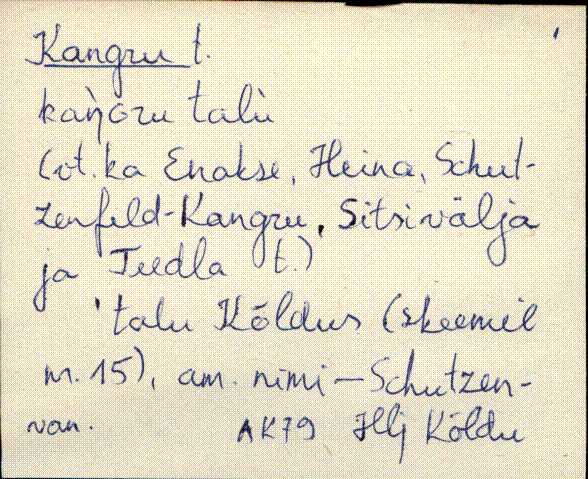 Kangru t.
kaŋ̀gru talù
(vt. ka Enakse, Heina, Schut-
zenfeld-Kangru, Sitsivälja
ja Teedla t.)
'talu Kõldus (skeemil
nr. 15), am. nimi — Schutzen-
van. AK79 Hlj Kõldu